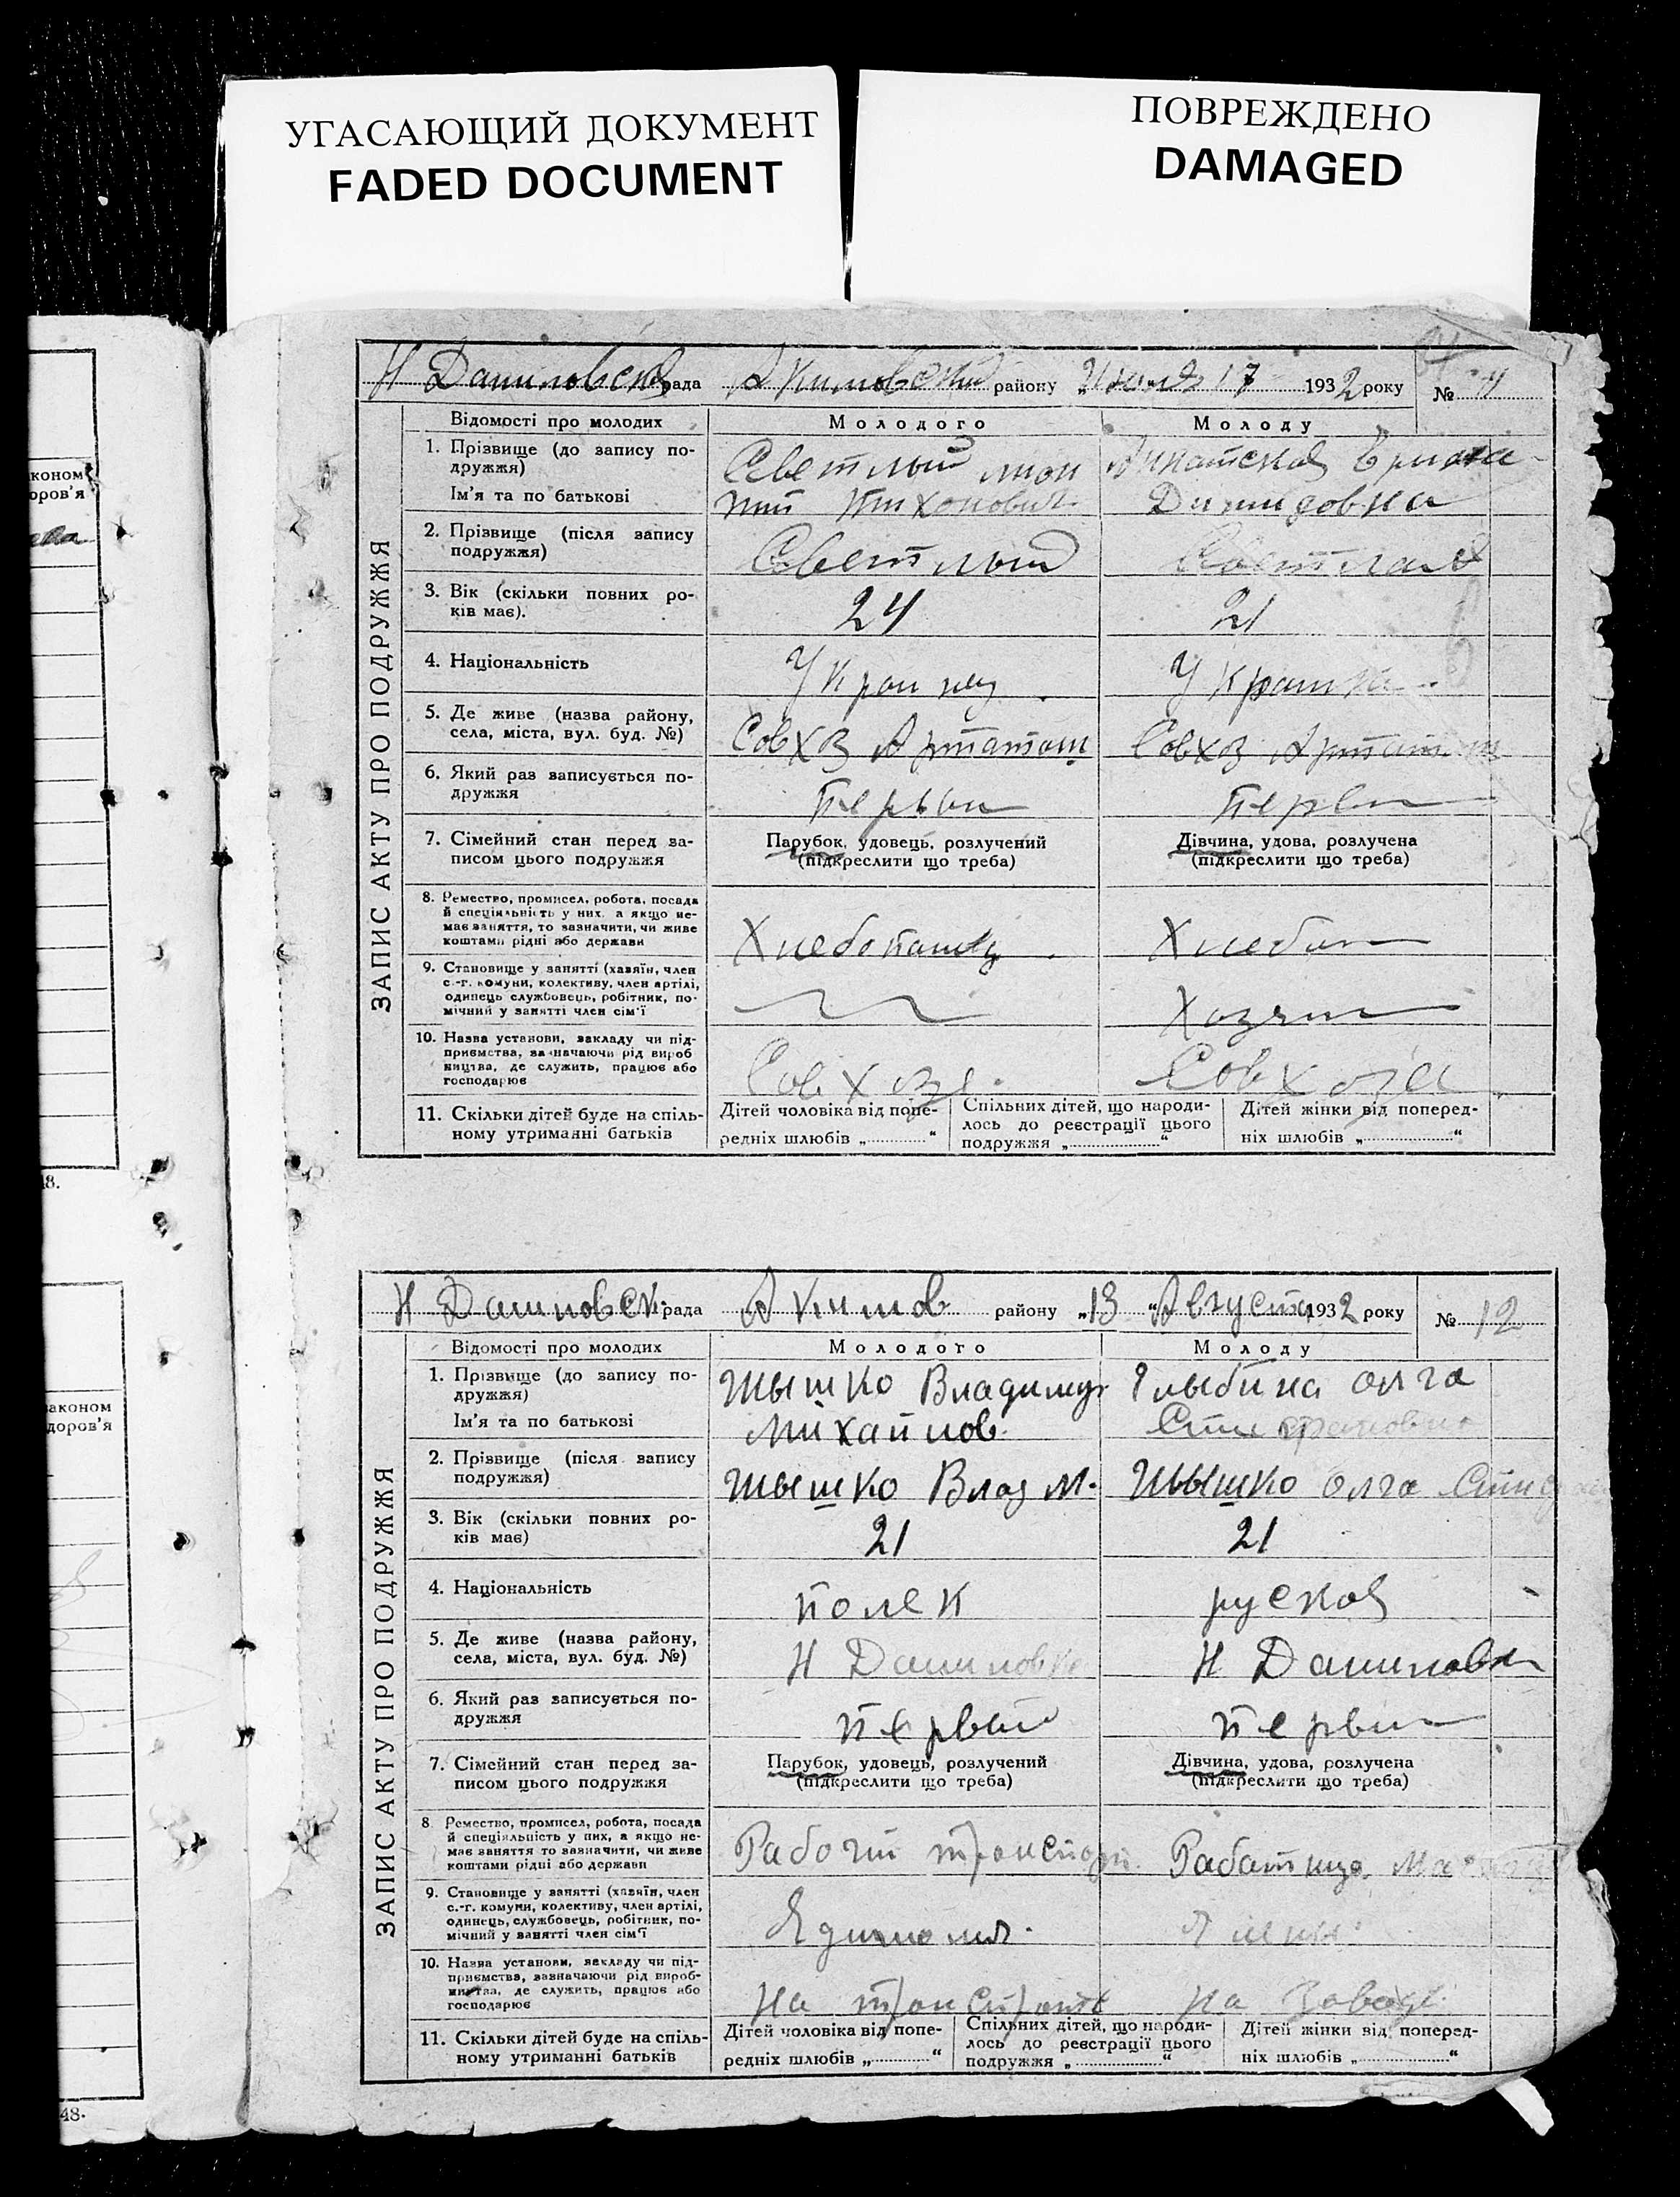 УГАСАЮЩИЙ ДОКУМЕНТ
FADED DOCUMENT
ПОВРЕЖДЕНО
DAMAGED
коном
оров'я
8.
аконом
доров'я
48.
ЗАПИС АКТУ ПРО ПОДРУЖЖЯ
Н Даниловская рада Акимовский району „ 17 1932 року №
Відомості про молодих Молодого Молоду
1. Прізвище (до запису по-
дружжя)
Ім'я та по батькові
Светлый
Тихонович
Демидовна
2. Прізвище (після запису
подружжя)
Светлый Светлая
3. Вік (скільки повних ро-
ків має).
24 21
4. Національність
Украинец Украинка
5. Де живе (назва району,
села, міста, вул. буд. №)
Совхоз Совхоз
6. Який раз записується по-
дружжя
Первый Первый
7. Сімейний стан перед за-
писом цього подружжя
Парубок, удовець, розлучений
(підкреслити що треба)
Дівчина, удова, розлучена
(підкреслити що треба)
8. Ремество, промисел, робота, посада
й спеціяльність у них, а якщо не-
має заняття, то зазначити, чи живе
коштами рідні або держави
Хлебопашец
9. Становище у занятті (хазяїн, член
с.-г. комуни, колективу, член артілі,
одинець службовець, робітник, по-
мічний у занятті член сім'ї
10. Назва установи, закладу чи під-
приємства, зазначаючи рід вироб
ництва, де служить, працює або
господарює
Совхоза
11. Скільки дітей буде на спіль-
ному утриманні батьків
Дітей чоловіка від попе-
редніх шлюбів „ “
Спільних дітей, що народи-
лось до реєстрації цього
подружжя „ “
Дітей жінки від поперед-
ніх шлюбів „ “
ЗАПИС АКТУ ПРО ПОДРУЖЖЯ
Н Даниловск. рада Акимов району „13 “Августа 1932 року № 12
Відомості про молодих Молодого Молоду
1. Прізвище (до запису по-
дружжя)
Ім'я та по батькові
Шышко Владимир Глыбина Олга
Михайлов.
2. Прізвище (після запису
подружжя)
Шышко Влад М. Шышко Олга
3. Вік (скільки повних ро-
ків має)
21 21
4. Національність
полек руская
5. Де живе (назва району,
села, міста, вул. буд. №)
Н Даниловке Н Даниловк
6. Який раз записується по-
дружжя
первый первый
7. Сімейний стан перед за-
писом цього подружжя
Парубок, удовець, розлучений
(підкреслити що треба)
Дівчина, удова, розлучена
(підкреслити що треба)
8 Ремество, промисел, робота, посада
й спеціяльність у них, а якщо не-
має заняття то зазначити, чи живе
коштами рідні або держави
Рабочий
9. Становище у занятті (хазяїн, член
с.-г. комуни, колективу, член артілі,
одинець, службовець, робітник, по-
мічний у занятті член сім'ї
10. Назва установи, закладу чи під-
приємства, зазначаючи рід вироб-
ництва, де служить, працює або
господарює
на на Заводе
11. Скільки дітей буде на спіль-
ному утриманні батьків
Дітей чоловіка від попе-
редніх шлюбів „ “
Спільних дітей, що народи-
лось до реєстрації цього
подружжя „ “
Дітей жінки від поперед-
ніх шлюбів „ “